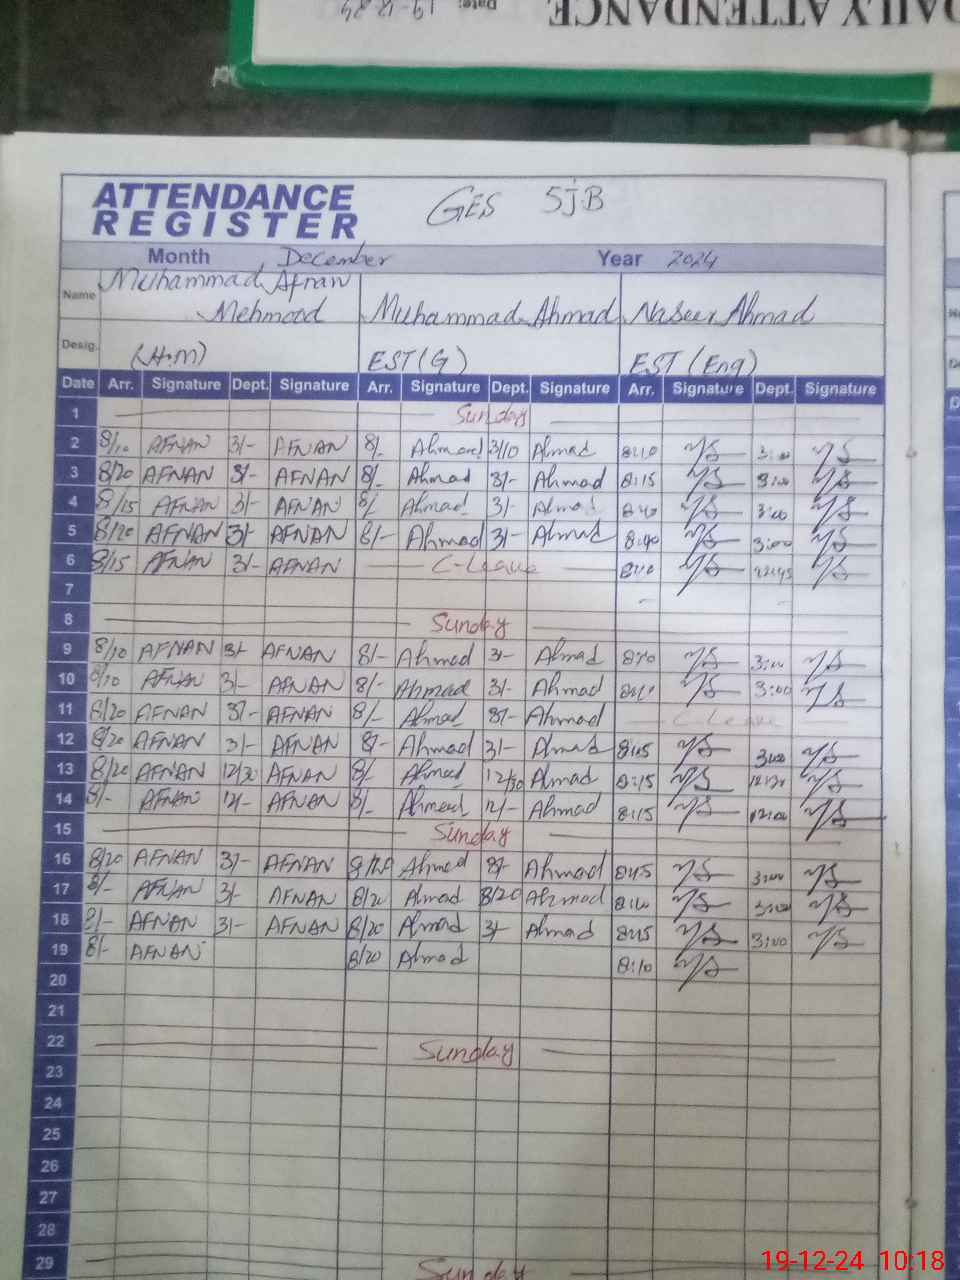 DAILY ATTENDANCE
Date: 19-12-24
ATTENDANCE
REGISTER
GES 5JB
Month December Year 2024
Name Muhammad Afnan Mehmood Muhammad Ahmad Naseer Ahmad
Desig. (H.M) EST(G) EST (Eng)
Date Arr. Signature Dept. Signature Arr. Signature Dept. Signature Arr. Signature Dept. Signature
1 Sunday
2 8/10 AFNAN 3/- AFNAN 8/- Ahmad 3/10 Ahmad 8:10 3:00
3 8/20 AFNAN 3/- AFNAN 8/- Ahmad 3/- Ahmad 8:15 3:00
4 8/15 AFNAN 3/- AFNAN 8/ Ahmad 3/- Ahmad 3:00
5 8/20 AFNAN 3/- AFNAN 8/- Ahmad 3/- Ahmad 3:00
6 8/15 AFNAN 3/- AFNAN C-Leave
7
8 Sunday
9 8/10 AFNAN 3/- AFNAN 8/- Ahmad 3/- Ahmad 8:10 3:00
10 8/10 AFNAN 3/- AFNAN 8/- Ahmad 3/- Ahmad 3:00
11 8/20 AFNAN 3/- AFNAN 8/- Ahmad Ahmad C-Leave
12 8/20 AFNAN 3/- AFNAN 8/- Ahmad 3/- Ahmad 8:15 3:00
13 8/20 AFNAN 12/30 AFNAN 8/- Ahmad 12/30 Ahmad 8:15 12:30
14 8/- AFNAN 12/- AFNAN 8/- Ahmad 12/- Ahmad 8:15 12:00
15 Sunday
16 8/20 AFNAN 3/- AFNAN 8/20 Ahmad Ahmad 3:00
17 8/- AFNAN 3/- AFNAN 8/20 Ahmad 8/20 Ahmad 8:10 3:00
18 8/- AFNAN 3/- AFNAN 8/20 Ahmad 3/- Ahmad 3:00
19 8/- AFNAN 8/20 Ahmad 8:10
20
21
22 Sunday
23
24
25
26
27
28
29 Sunday
19-12-24 10:18